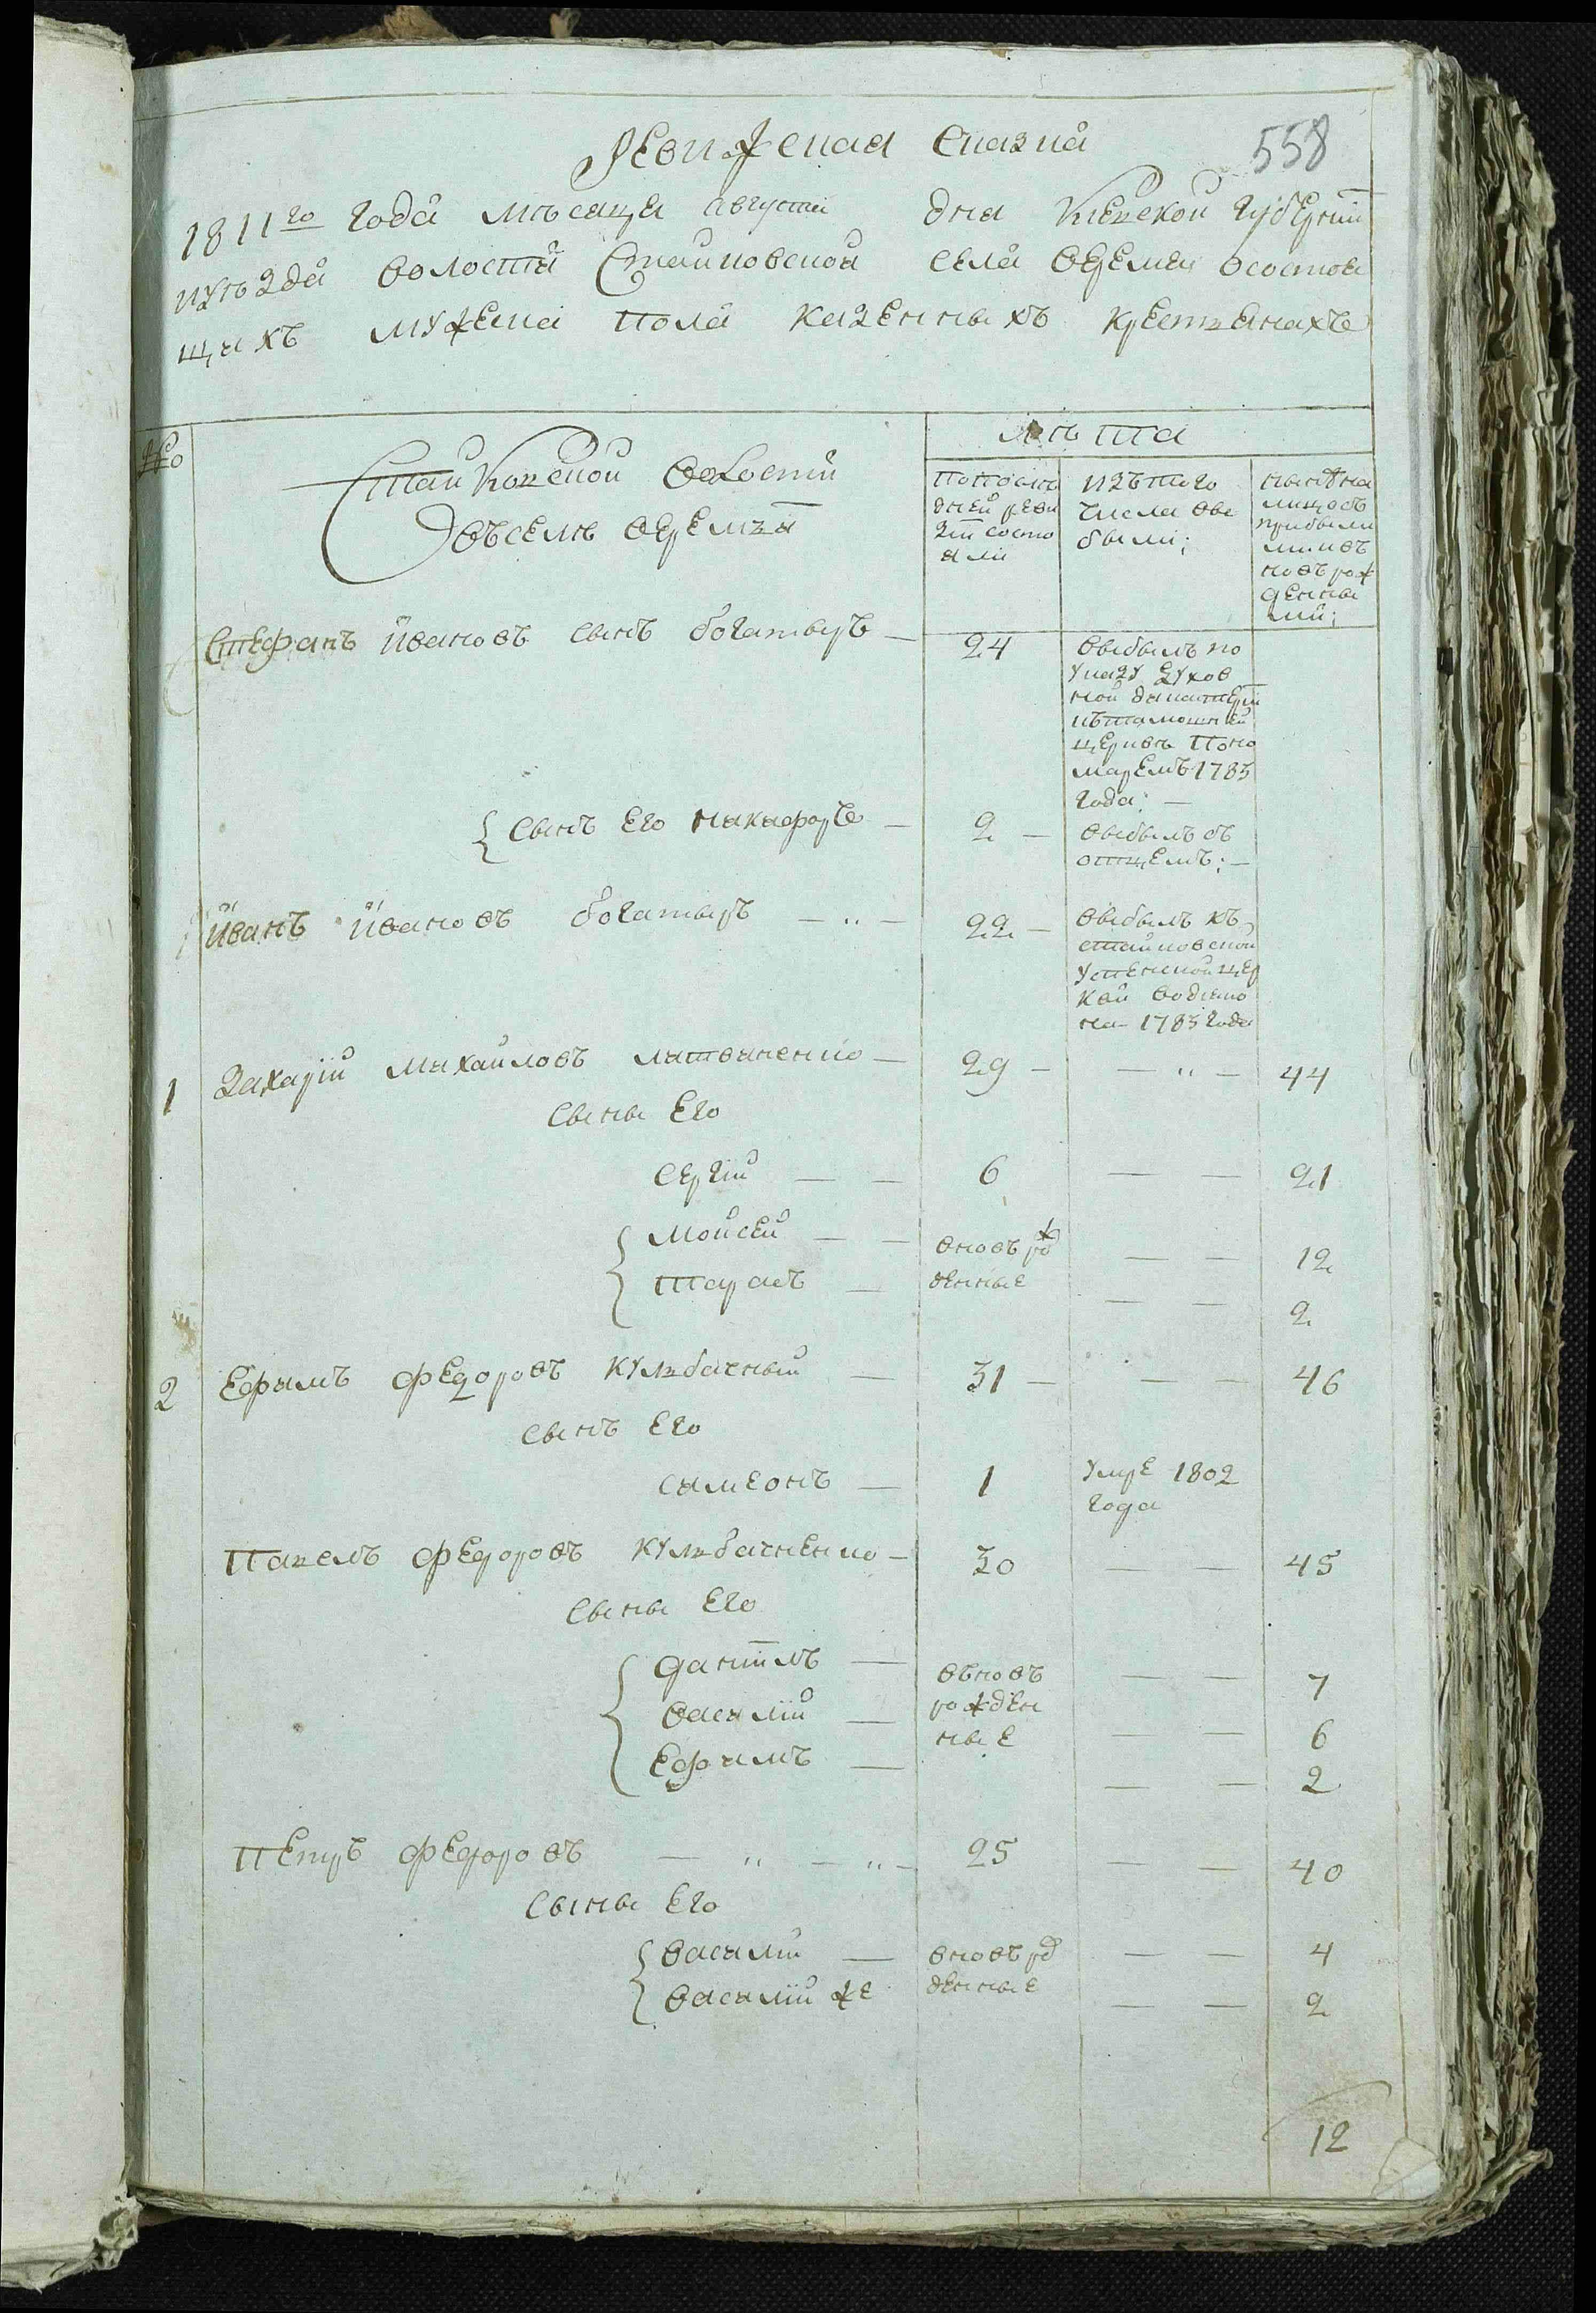 558
Ревижская сказка
1811го Года мѣсяца августа дня Кіевской губерніи
и уѣзда волости Стайковской села веремья осостоя
щихъ мужеска пола казенныхъ крестьянахъ
№
Стайковской волости
Въселѣ веремьи
лѣта
попослѣ
дней реви
зіи состо
яли
изътого
числа вы
были;
нынѣна
лицосъ
прибыли
ми и въ
новь рож
денны
ми;
Стефанъ ивановъ сынъ богатыръ — 24
выбылъ по
указу духов
ной дикастеріи
кътамошней
церквѣ поно
маремъ 1785
года; —
{ сынъ его никифоръ — 2 —
выбылъ съ
отцемъ; —
иванъ ивановъ богатыръ — " — 22 —
выбылъ къ
стайковской
успенской цер
кви водіяко
на 1785 года
1 Захарій михайловъ литвиненко — 29 — — " — 44
сыны его
сергій — — 6 — — 21
{ мойсей — — вновь рож — — 12
тарасъ — денные — — 2
2 Ефимъ федоровъ кульбачный — 31 — — — 46
сынъ его
симеонъ — 1 умре 1802
года
павелъ федоровъ кульбачненко — 30 — — 45
сыны его
{ даніилъ — въновъ — — 7
василій — рожден — — 6
ефимъ — ные — — 2
петръ федоровъ — " — " — 25 — — 40
сыны его
{ василій — вновъ рож — — 4
василій же денные — — 2
12